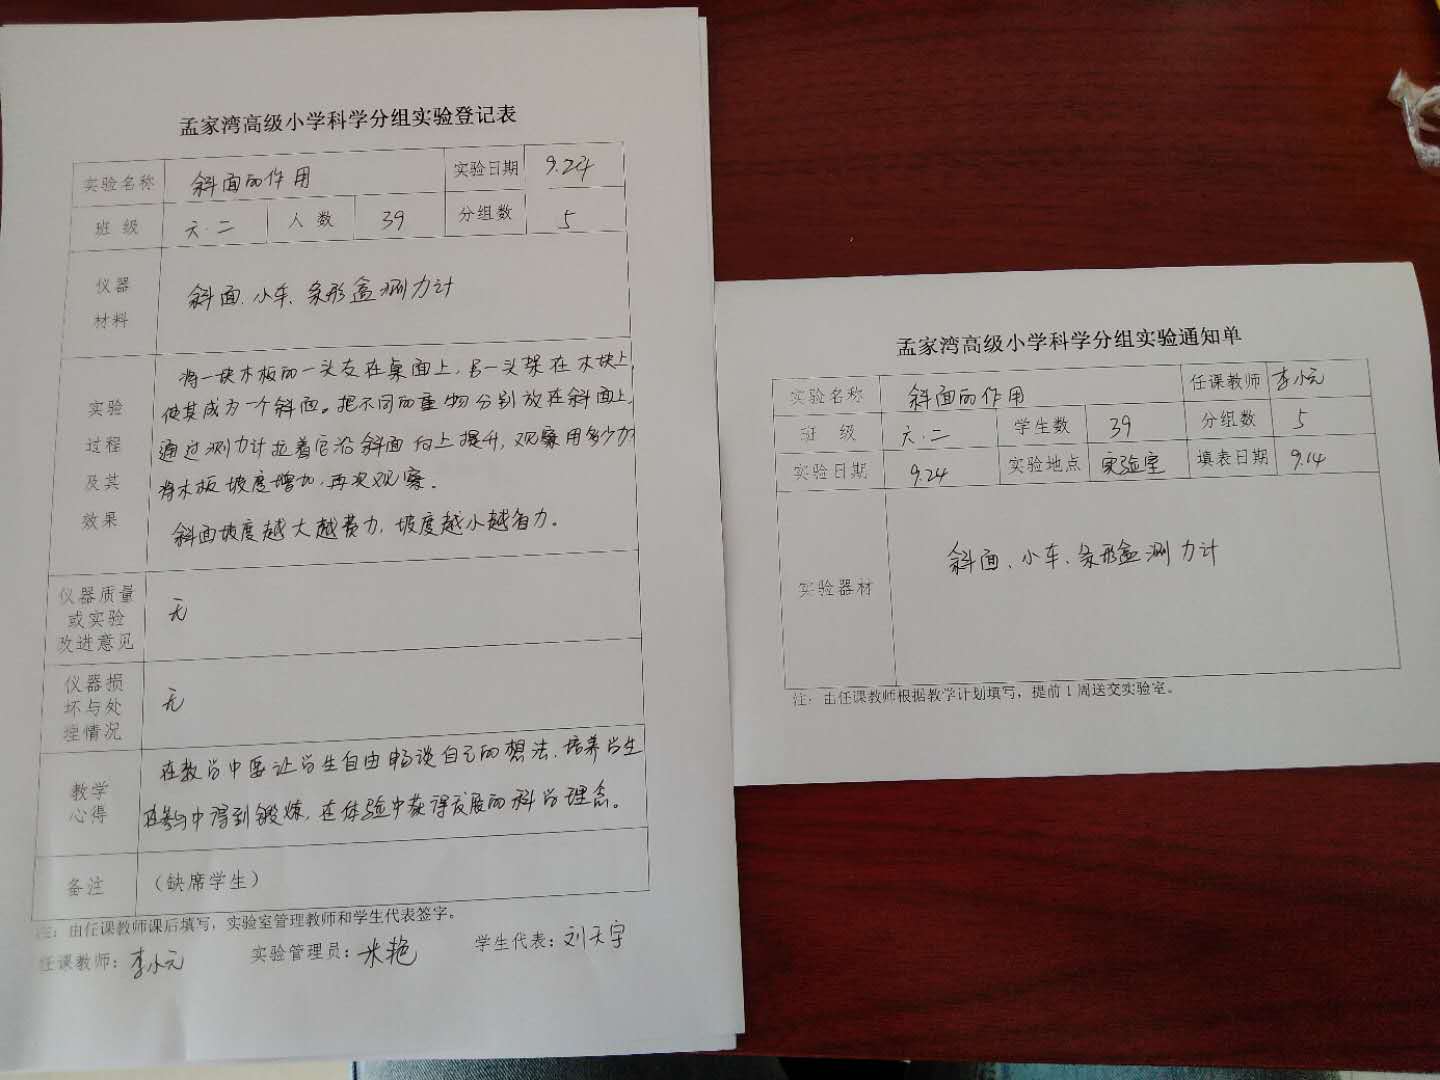 孟家湾高级小学科学分组实验登记表
实验名称 斜面的作用 实验日期 9.24
班 级 六.二 人 数 39 分组数 5
仪器
材料
斜面、小车、条形盒测力计
实验
过程
及其
效果
将一块木板的一头支在桌面上,另一头架在木块上,
使其成为一个斜面。把不同的重物分别放在斜面上,
通过测力计拉着它沿斜面向上提升,观察用多少力?
将木板坡度增加,再次观察。
斜面坡度越大越费力,坡度越小越省力。
仪器质量
或实验
改进意见
无
仪器损
坏与处
理情况
无
教学
心得
在教学中要让学生自由畅谈自己的想法,培养学生
在参与中得到锻炼,在体验中获得发展的科学理念。
备注 (缺席学生)
注:由任课教师课后填写,实验室管理教师和学生代表签字。
任课教师:李小元 实验管理员:米艳 学生代表:刘天宇
孟家湾高级小学科学分组实验通知单
实验名称 斜面的作用 任课教师 李小元
班 级 六.二 学生数 39 分组数 5
实验日期 9.24 实验地点 实验室 填表日期 9.14
实验器材 斜面、小车、条形盒测力计
注:由任课教师根据教学计划填写,提前1周送交实验室。